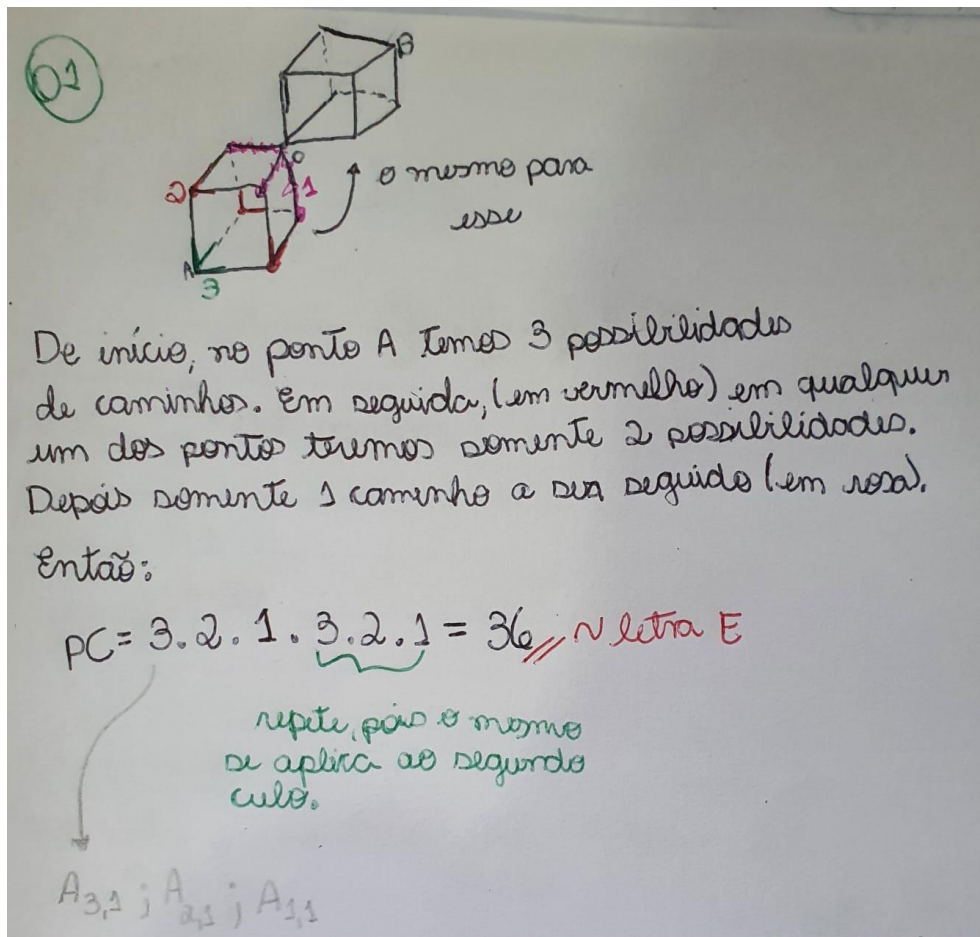 01
B
C
2
1
o mesmo para
esse
A
3
De início, no ponto A temos 3 possibilidades
de caminhos. Em seguida, (em vermelho) em qualquer
um dos pontos teremos somente 2 possibilidades.
Depois somente 1 caminho a ser seguido (em rosa).
Então:
PC = 3.2.1.3.2.1 = 36 // ~ letra E
repete, pois o mesmo
se aplica ao segundo
cubo.
A3,1 ; A2,1 ; A1,1